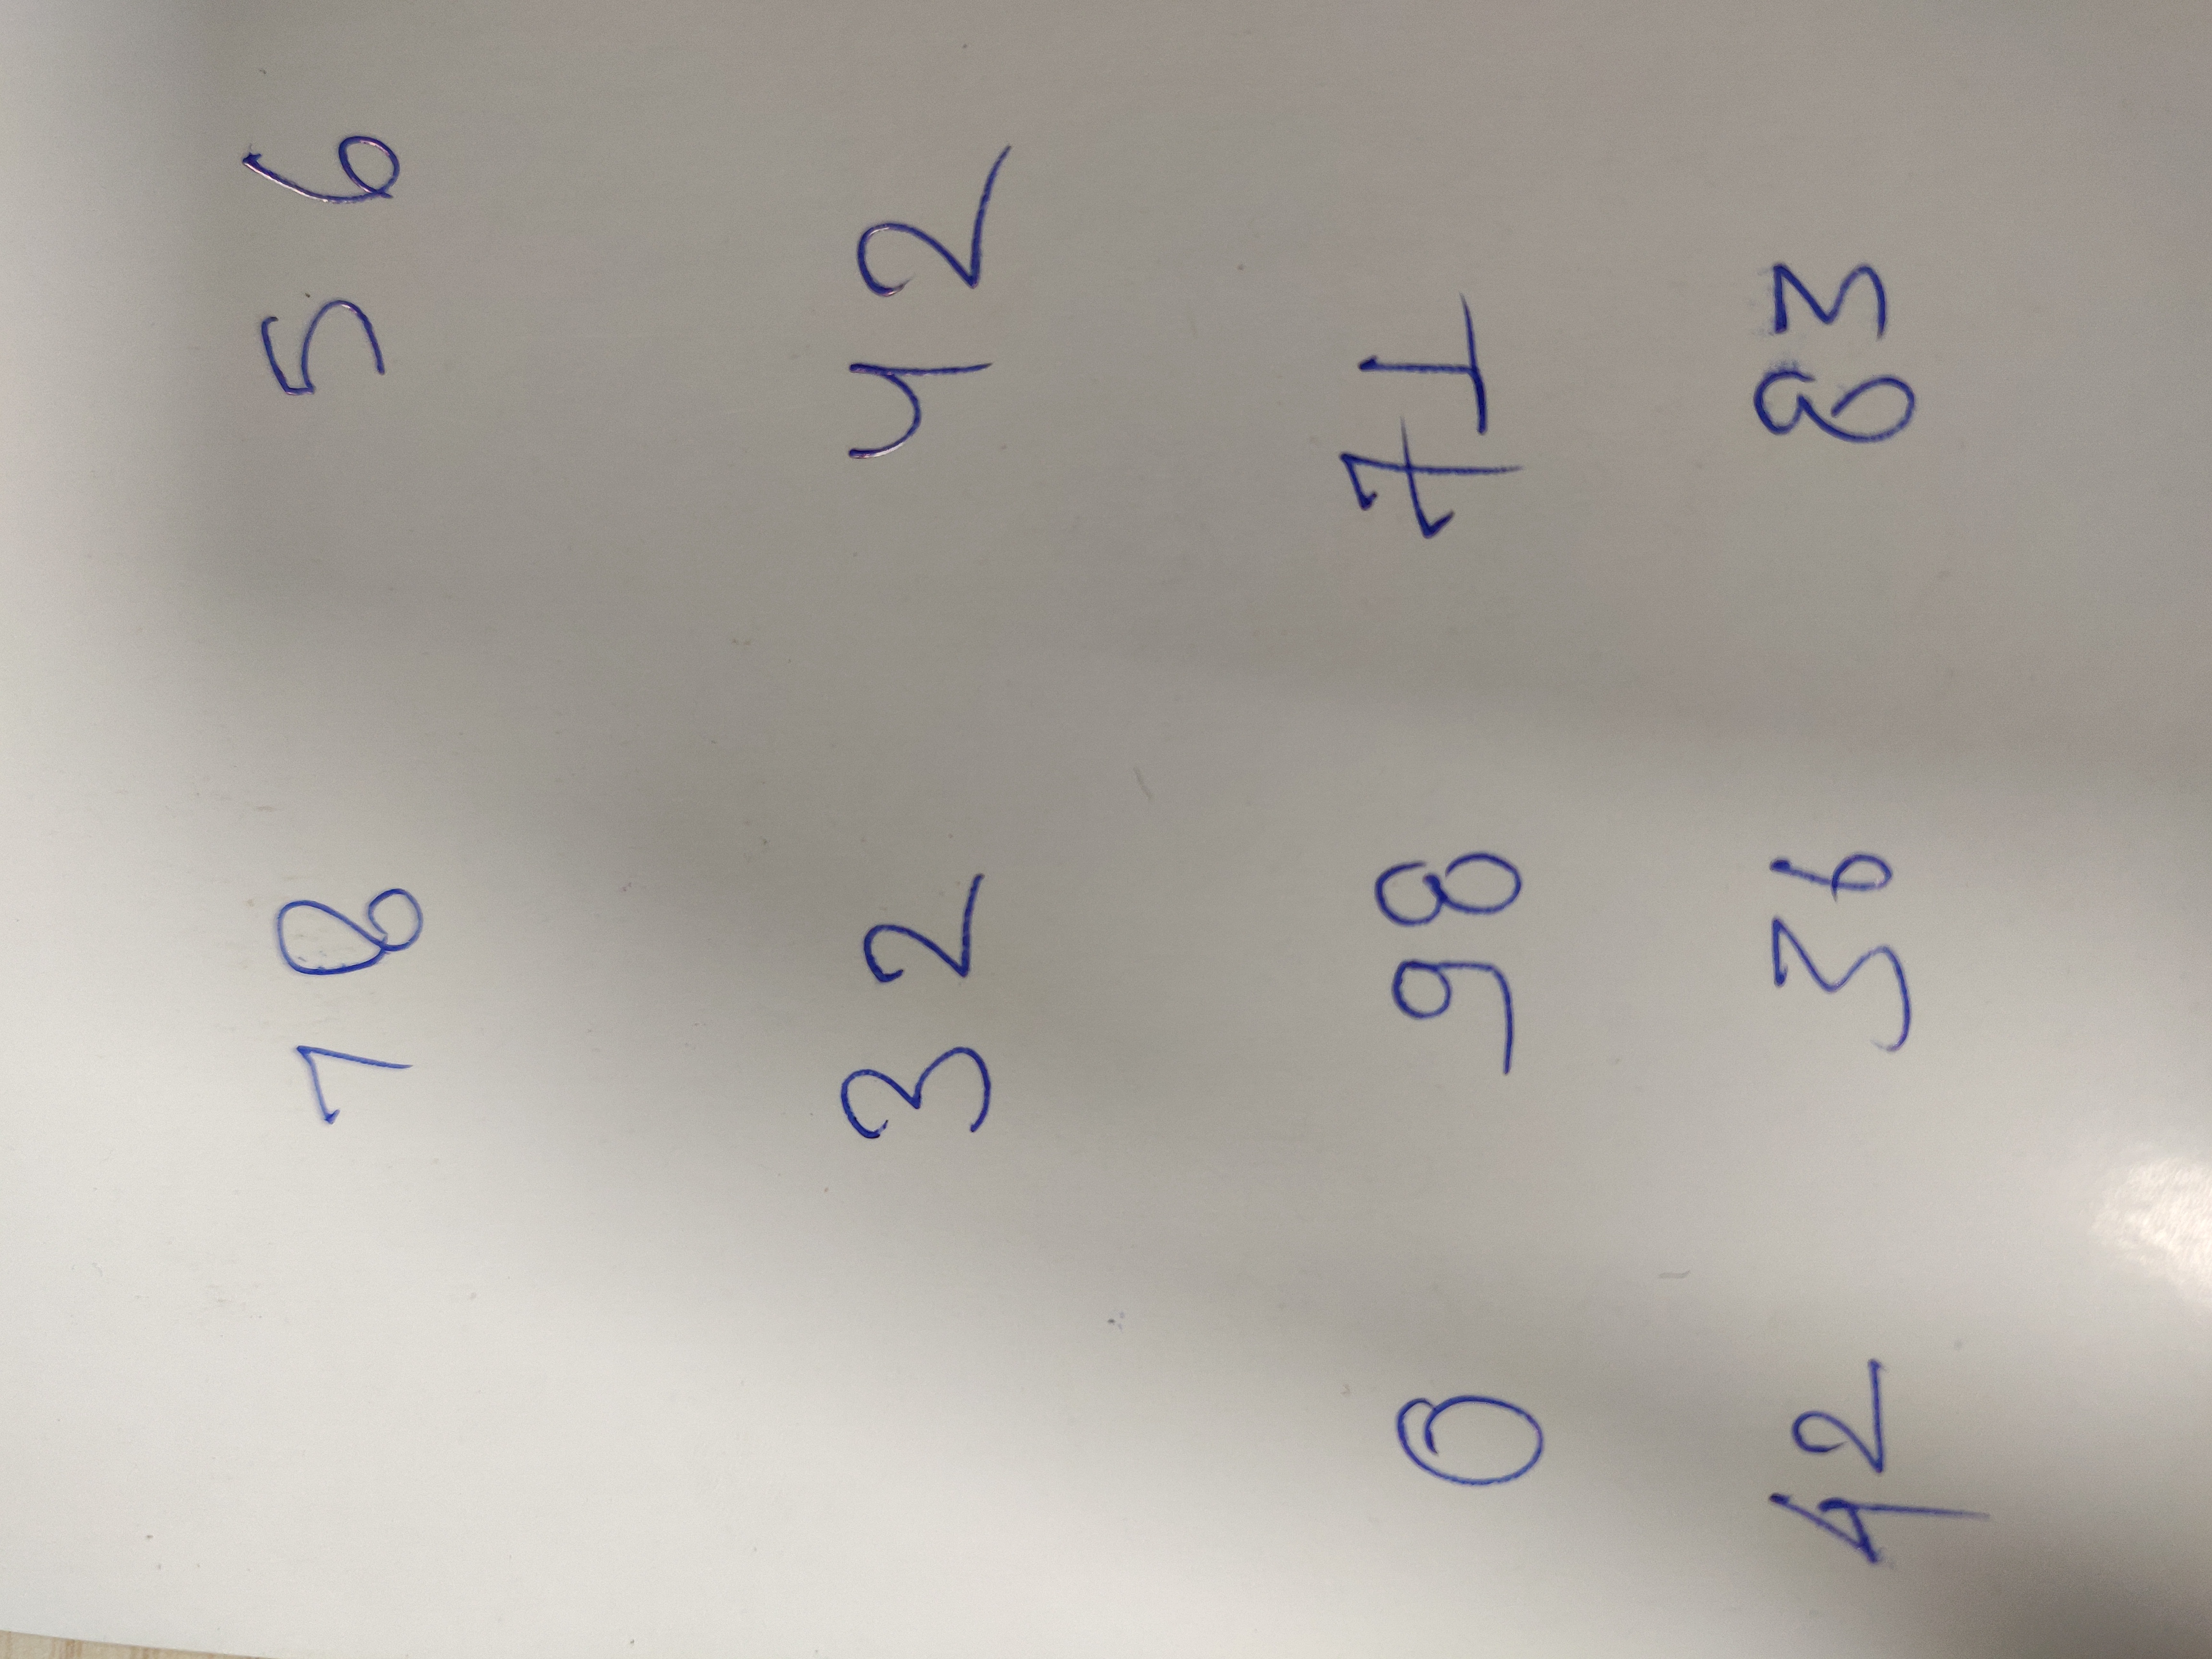 18 56
32 42
0 98 71
42 36 83